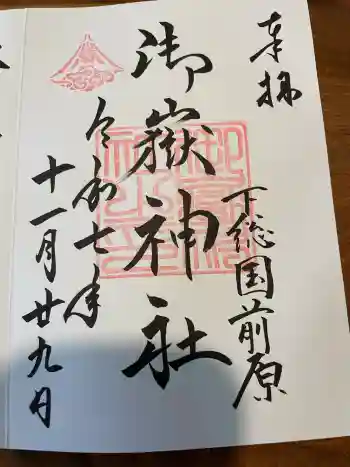 奉拝
下総国前原
御嶽神社
令和七年
十一月廿九日